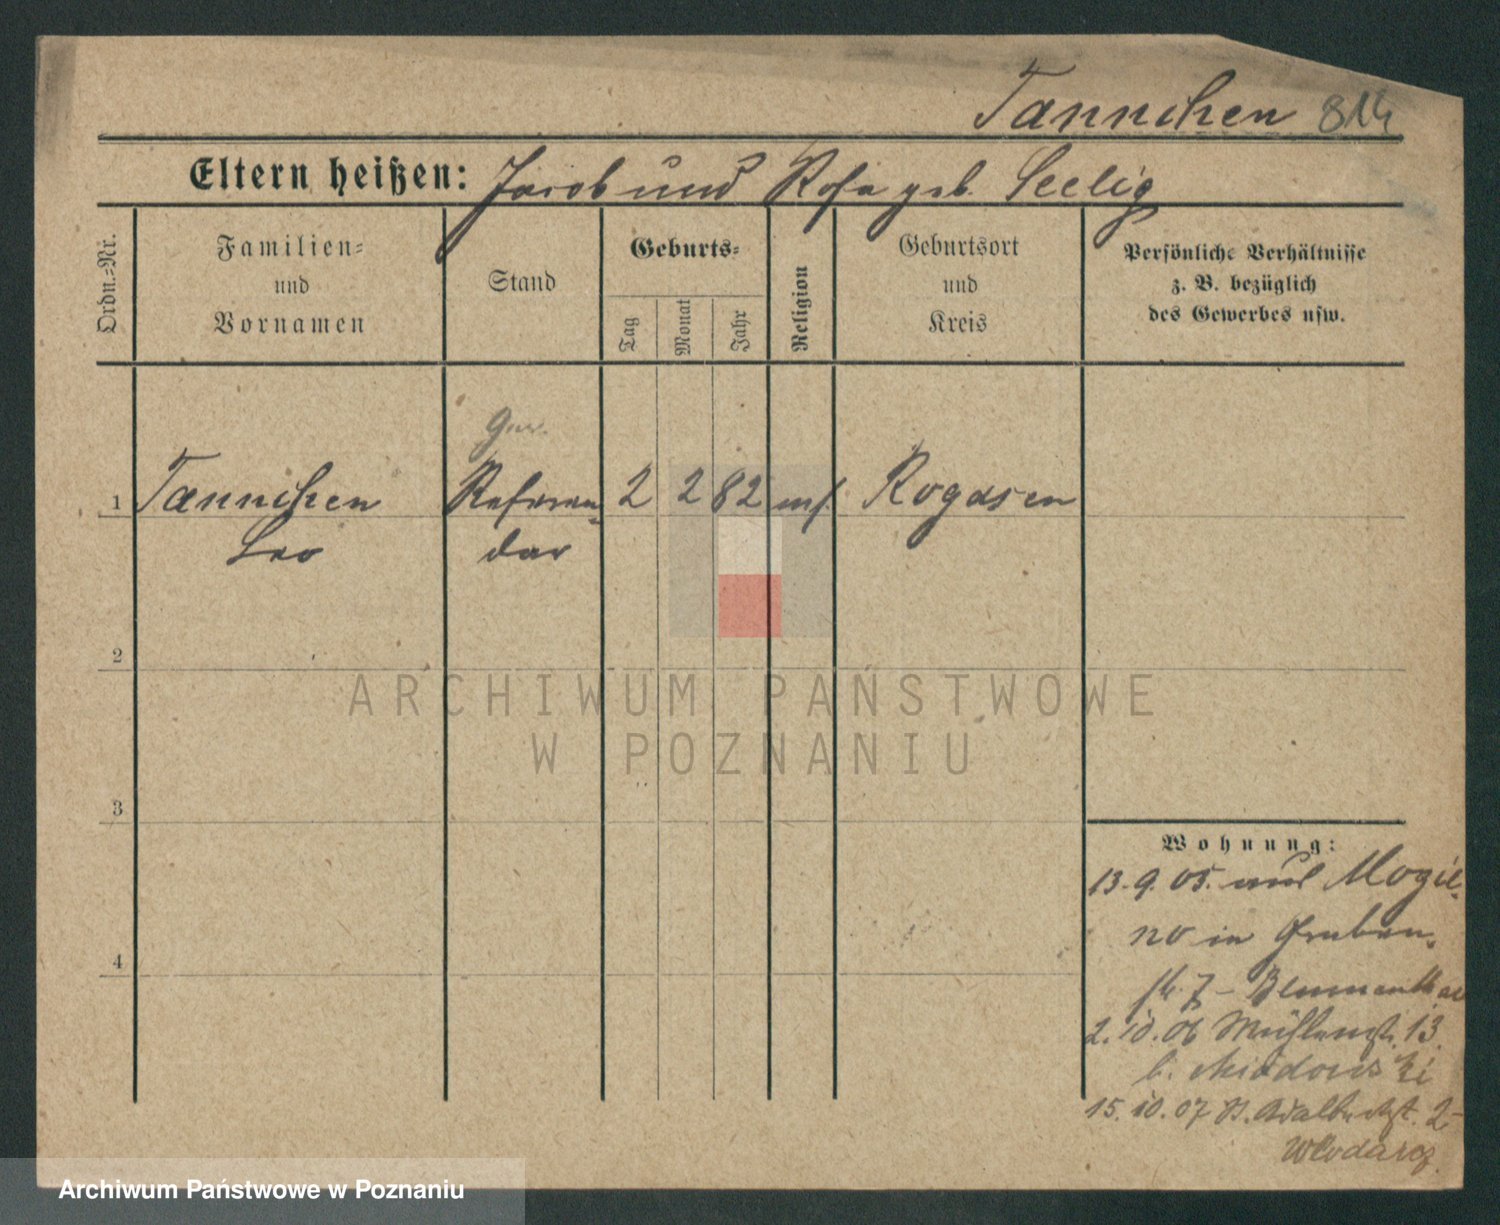 Tannchen 814
Eltern heißen: Jacob und Rosa geb. Seelig
Ordn.=Nr.
Familien=
und
Vornamen
Stand
Geburts=
Tag
Monat
Jahr
Religion
Geburtsort
und
Kreis
Persönliche Verhältnisse
z. B. bezüglich
des Gewerbes usw.
1 Tannchen Referen= 2 2 82 Rogasen
Leo dar
2
3
4
Wohnung:
13.9.05. aus Mogil=
no in Graben=
str. 7 - Blumenthal
2.10.06 Mühlenstr. 13.
b. Miodowski
15.10.07 St. Adalbertstr. 2-
Wlodarcz.
ARCHIWUM PAŃSTWOWE
W POZNANIU
Archiwum Państwowe w Poznaniu